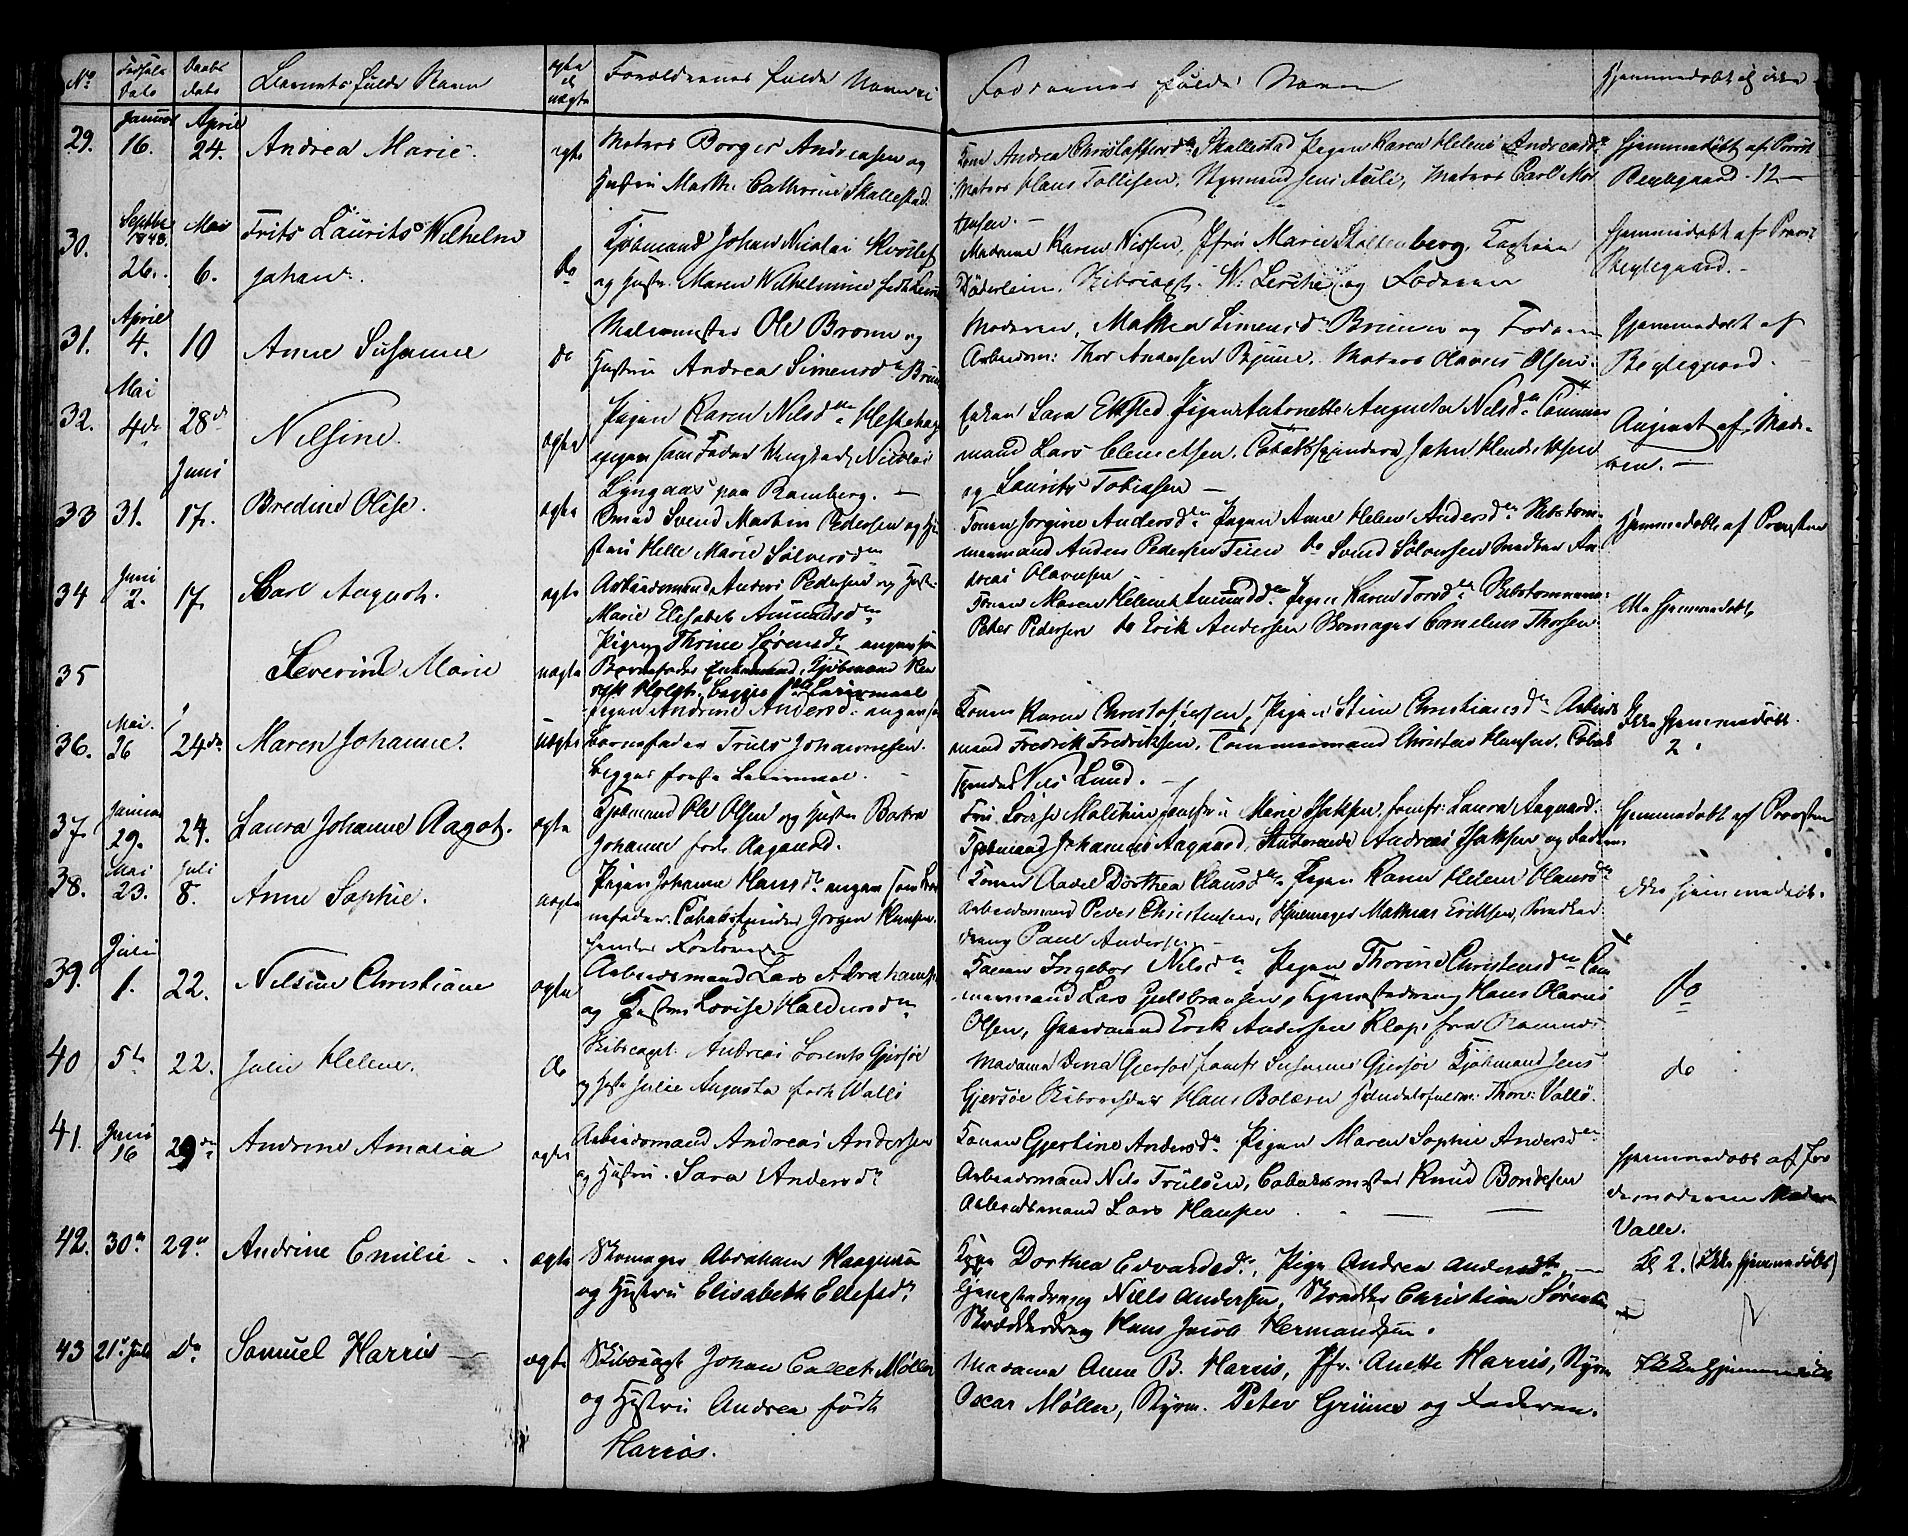 No Fødsels Dato Daabs dato Barnets fulde Navn ægte el uægte Forældrenes fulde Navne Faddernes fulde Navne Hjemmedøbt el ikke
29. Januar 16. April 24. Andrea Marie. ægte Matros Borger Andreasen og
Hustru Marthe Cathrine Skallestad
Kone Andrea Christophersd. Skallestad Pigen Karen Helene Andreasd.
Matros Hans Tollefsen, Styrmand Jens Aule, Matros Carl Mor
tensen. —
Hjemmedøbt af Provst
Beglegaard. 12 —
30. Septbr 1848. 26. Mai 6. Frits Laurits Wilhelm
Johan. do Kjøbmand Johan Nicolai
og Hustr. Maren Wilhelmine født
Madame Karen Nissen, Jfru Marie Stoltenberg, Captain
Døderlein, Skibscapt. W. Lerche og Faderen
Hjemmedøbt af Provst
Beglegaard. —
31. April 4. 10 Anne Susanne do Ole Bruun og
Hustru Andrea Simensd. Bruun
Moderen, Mathea Simensd. Bruun og Faderen
Arbeidsm: Thor Andersen Matros Olaves Olsen.
Hjemmedøbt af
Beglegaard.
32. Mai 4de 28de Nilsine. uægte Pigen Karen Nilsd.
angiven som Fader Nicolai
Lyngaas paa Ramberg. —
Enken Sara Pigen Antonette Augusta Nilsd. Tømmer
mand Lars Clemetsen, Tobakspinder John Hendriksen
og Laurits Tobiasen —
Angivet af Mode-
ren. —
33 31. Juni 17. Bredine Olise. ægte Smed Svend Martin Pedersen og Hu
stru Helle Marie Sølversd.
Konen Jorgine Andersd. Pigen Anne Helene Andersd. Skibstøm-
mermand Anders Pedersen Teien do Svend Sølversen An
dreas Olavesen
Hjemmedøbt af Provsten
34 Juni 2. 17. Carl August. ægte Arbeidsmand Anders Pedersen og Hust.
Marie Elisabeth Amundsd.
Konen Maren Helene Amundsd. Pigen Karen Torsd. Skibstømmerm:
Peter Pedersen do Erik Andersen Cornelius Thorsen
Ikke hjemmedøbt,
35 Severine Marie uægte Pigen Thrine Sørensd. angiven som
Barnefader Enkemand, Kjøbmand Hen
rik Holst. Begges Leiermaal
36. Mai. 26 24de Maren Johanne. uægte Pigen Andrine Andersd. angiven som
barnefader Truls Johannesen.
begges første Leiermaal. —
Konen Karen Christofersen, Pigen Stine Christiansd. Arbeids
mand Fredrik Fredriksen, Tømmermand Christen Hansen, Tobak
spinder Nils Lund. —
Ikke hjemmedøbt.
2.
37. Januar 29. 24. Laura Johanne Aagot. ægte Kjøbmand Ole Olsen og Hustru
Johanne født Aagaard.
Fru Lovise Jomfru Marie Isaksen, Jomfr: Laura Aagaard.
Kjøbmand Johannes Aagaard, Studerende Andreas Isaksen og Faderen.
Hjemmedøbt af Provsten
38. Mai 23. Juli 8. Anne Sophie. uægte Pigen Johanne Hansd. angav som Bar
nefader. Tobakspinder Jørgen Hansen.
hendes Forlovede
Konen Aavel Dorthea Hansd. Pigen Karen Helene Hansd.
Arbeidsmand Peder Christensen, Mathias Eriksen,
dreng Paul Andersen —
Ikke hjemmedøbt.
39. Juli 1. 22. Nilsine Christiane ægte Arbeidsmand Lars Abrahamsen
og Hustru Lovise Haldorsd.
Konen Ingebor Nilsd. Pigen Thorine Christensd. Tøm
mermand Lars Guldbransen, Tjenestedreng Hans Olaves
Olsen, Gaardmand Erik Andersen Klop. fra Ramnæs
do
40 5te 22. Julie Helene. do Skibscapt. Andreas Lorents Gjersøe
og Hustr Julie Augusta født Wallø
Madame Dina Gjersøe Jomfr Susanne Gjersøe Kjøbmand Jens
Gjersøe Skibsreder Hans Bolæren Handelsfuldm: Thorv: Vallø.
do
41. Juni 16 29de Andrine Amalia ægte Arbeidsmand Andreas Andersen
og Hustru. Sara Andersd.
Konen Gjertine Andersd. Pigen Maren Sophie Andersd.
Arbeidsmand Nils Trulsen, Tobaksmester Knud Bondesen
Arbeidsmand Lars Hansen . — —
Hjemmedøbt af Jor
demoderen Madam
Valle.
42. 30te 29de Andrine Emilie ægte Skomager Abraham Haagensen
og Hustru Elisabeth Ellefsd.
Kone Dorthea Edvardsd., Pige Andrea Andersdtr. —
Tjenestedreng Niels Andersen, Skrædder Christian Sørensen
Skrædderdreng Hans Jacob Hermandsen.
Kl 2. (Ikke hjemmedøbt)
43 21de Juli do Samuel Harris — ægte Skibscapt Johan Calleb Møller
og Hustru Andrea født
Harris.
Madame Anne B. Harris, Jfr. Anette Harris, Styrm
Oscar Møller, Styrm. Peter Grüner og Faderen.
Ikke hjemmedøbt